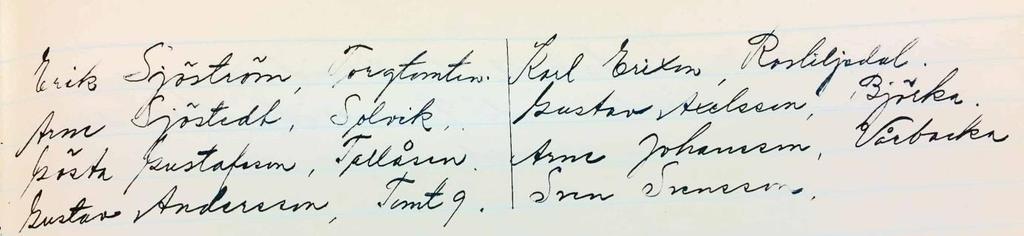 Erik Sjöström, Torgtomten.
Arne Sjöstedt, Solvik.
Gösta Gustafsson, Tallåsen.
Gustav Andersson, Tomt 9.
Karl Erixon, Rosliljedal.
Gustav Axelsson, Björka.
Arne Johansson, Vårbacka
Sven Svensson.